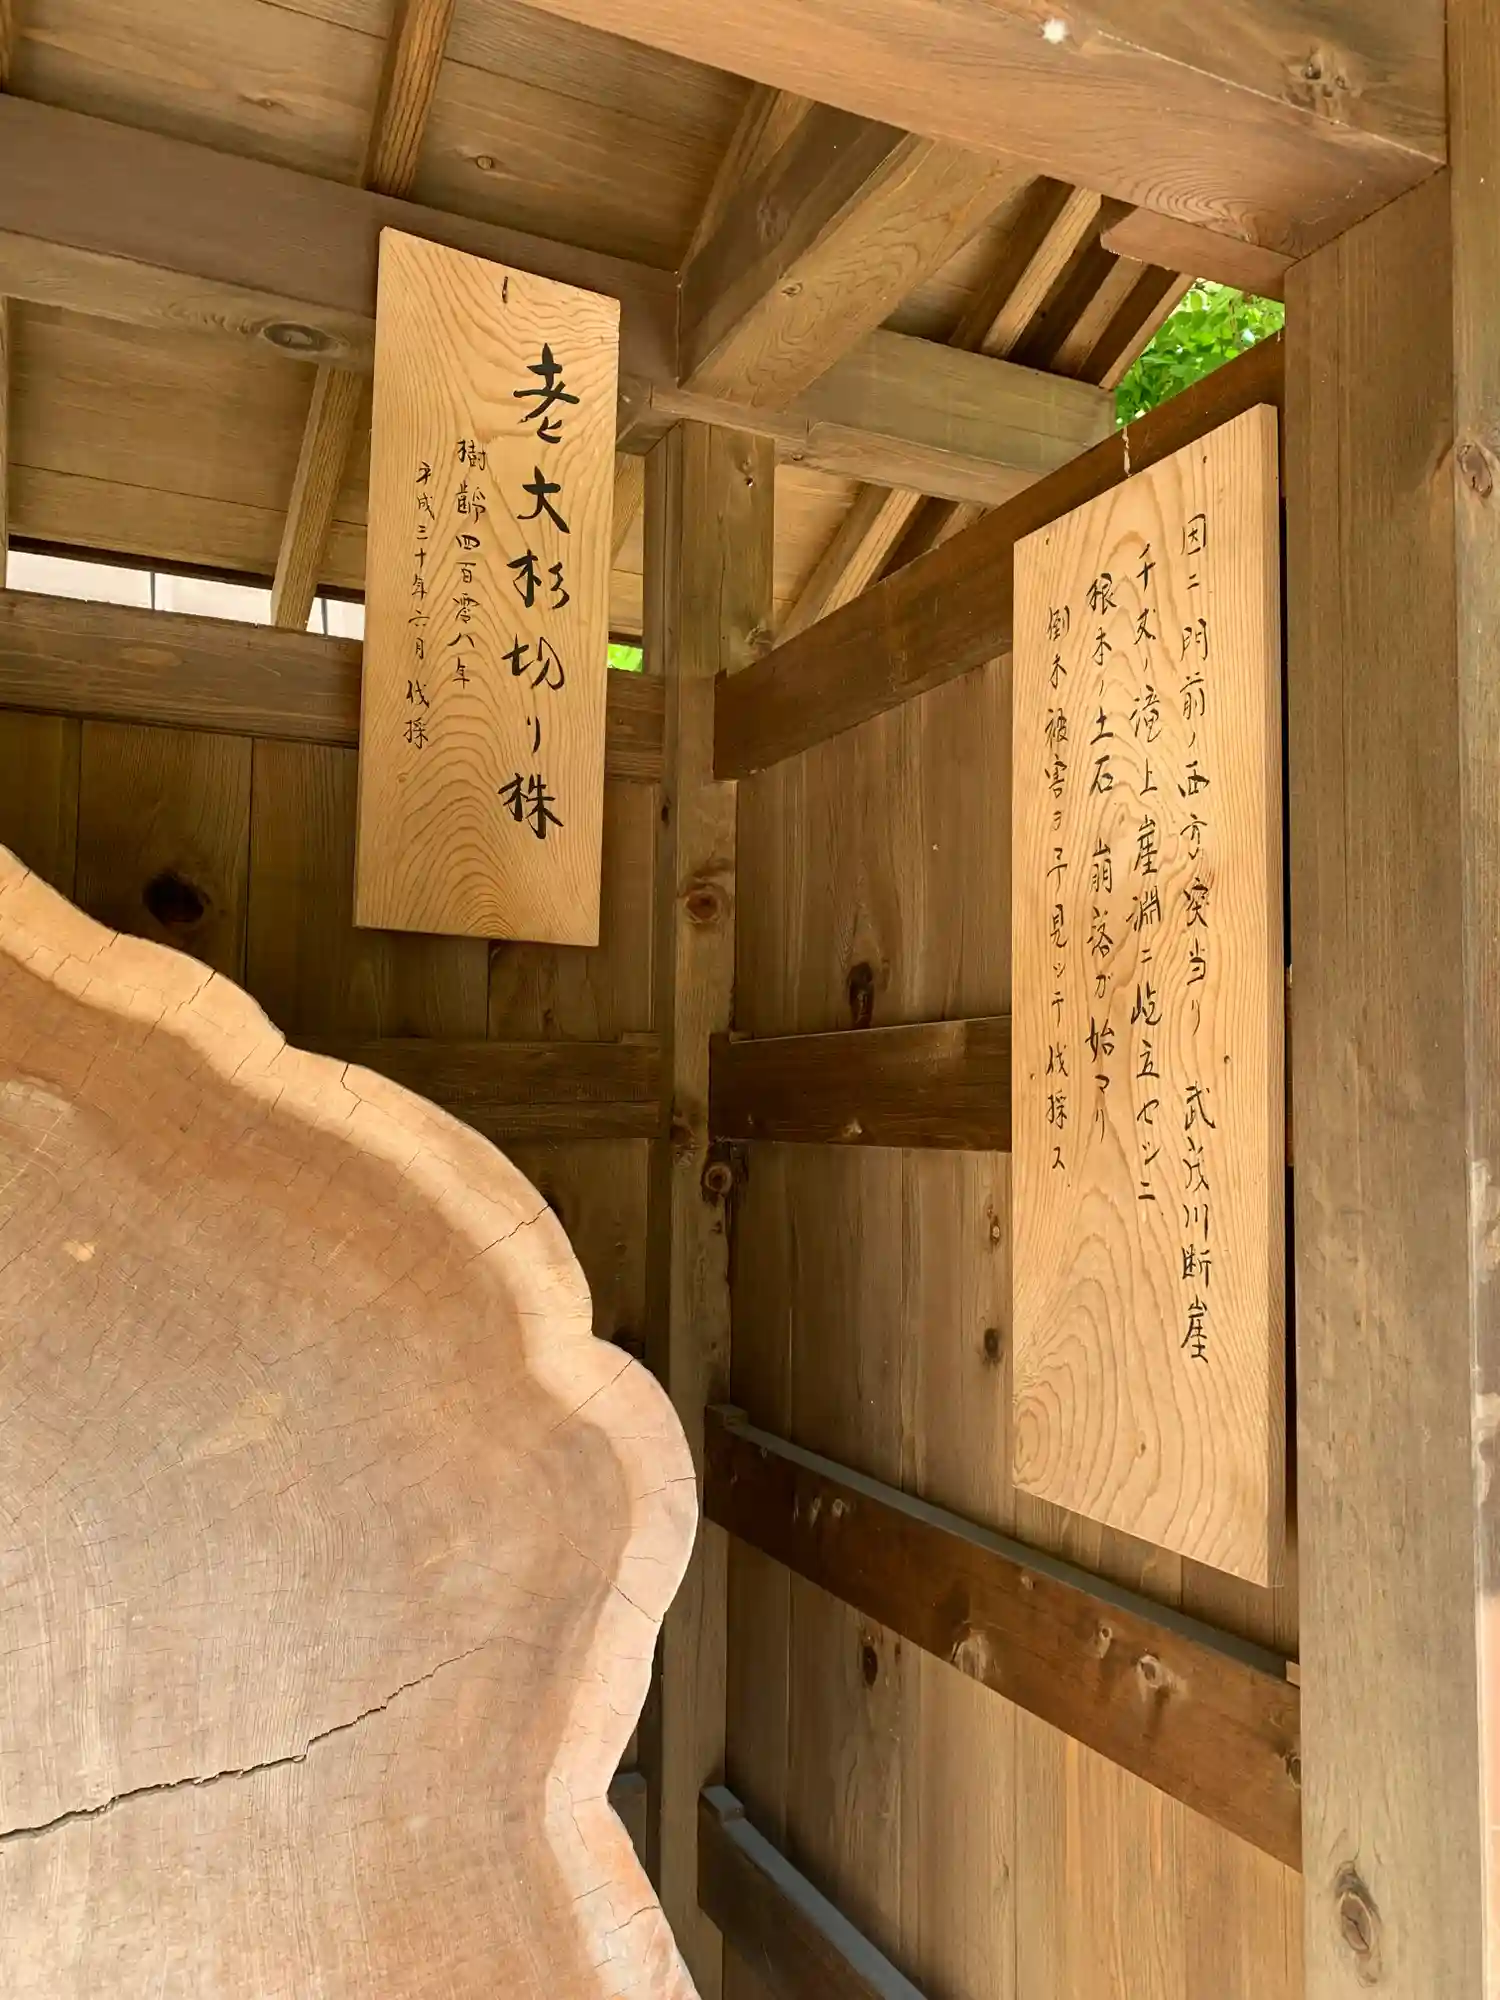 老大杉切り株
樹齢四百零八年
平成三十年六月 伐採
因ニ門前ノ西方突当リ 武茂川断崖
千丈ノ滝上崖淵ニ屹立セシニ
根本ノ土石 崩落ガ始マリ
倒木被害ヲ予見シテ伐採ス